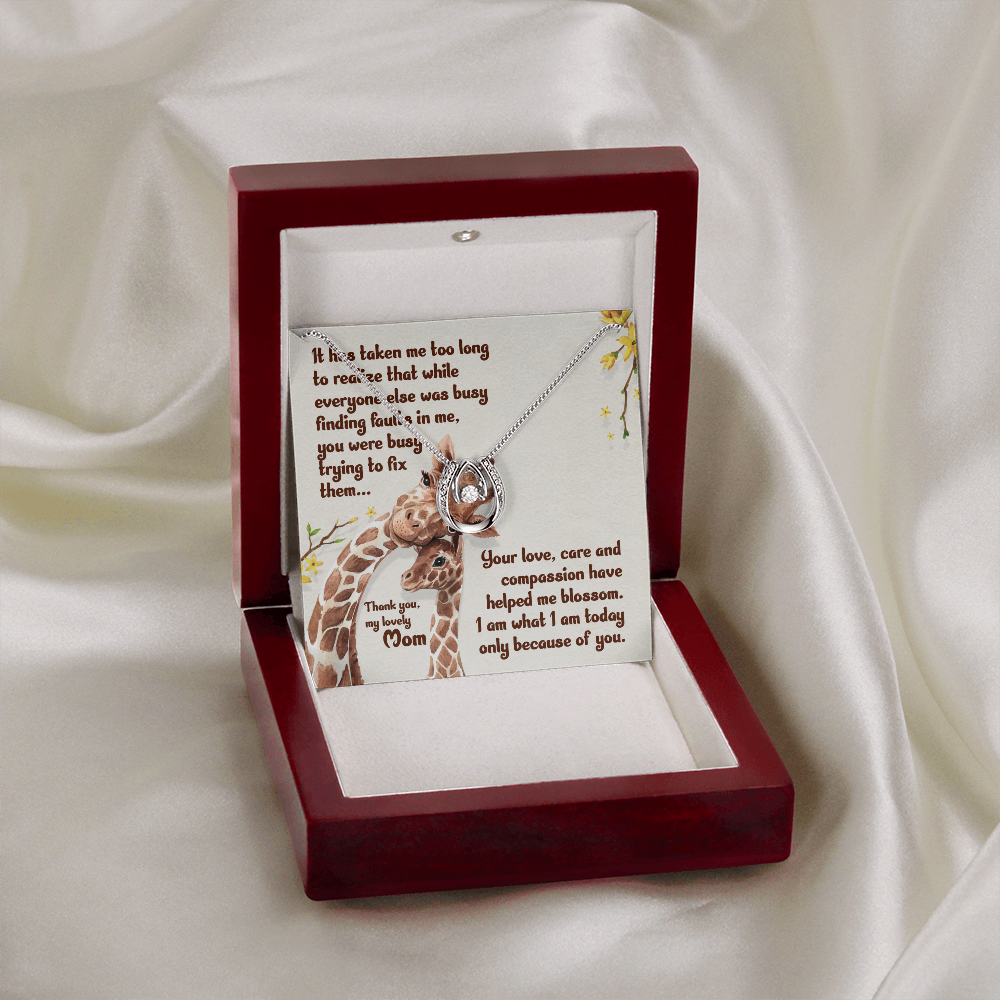 It has taken me too long
to realize that while
everyone else was busy
finding faults in me,
you were busy
trying to fix
them...
Your love, care and
compassion have
helped me blossom.
I am what I am today
only because of you.
Thank you,
my lovely
Mom